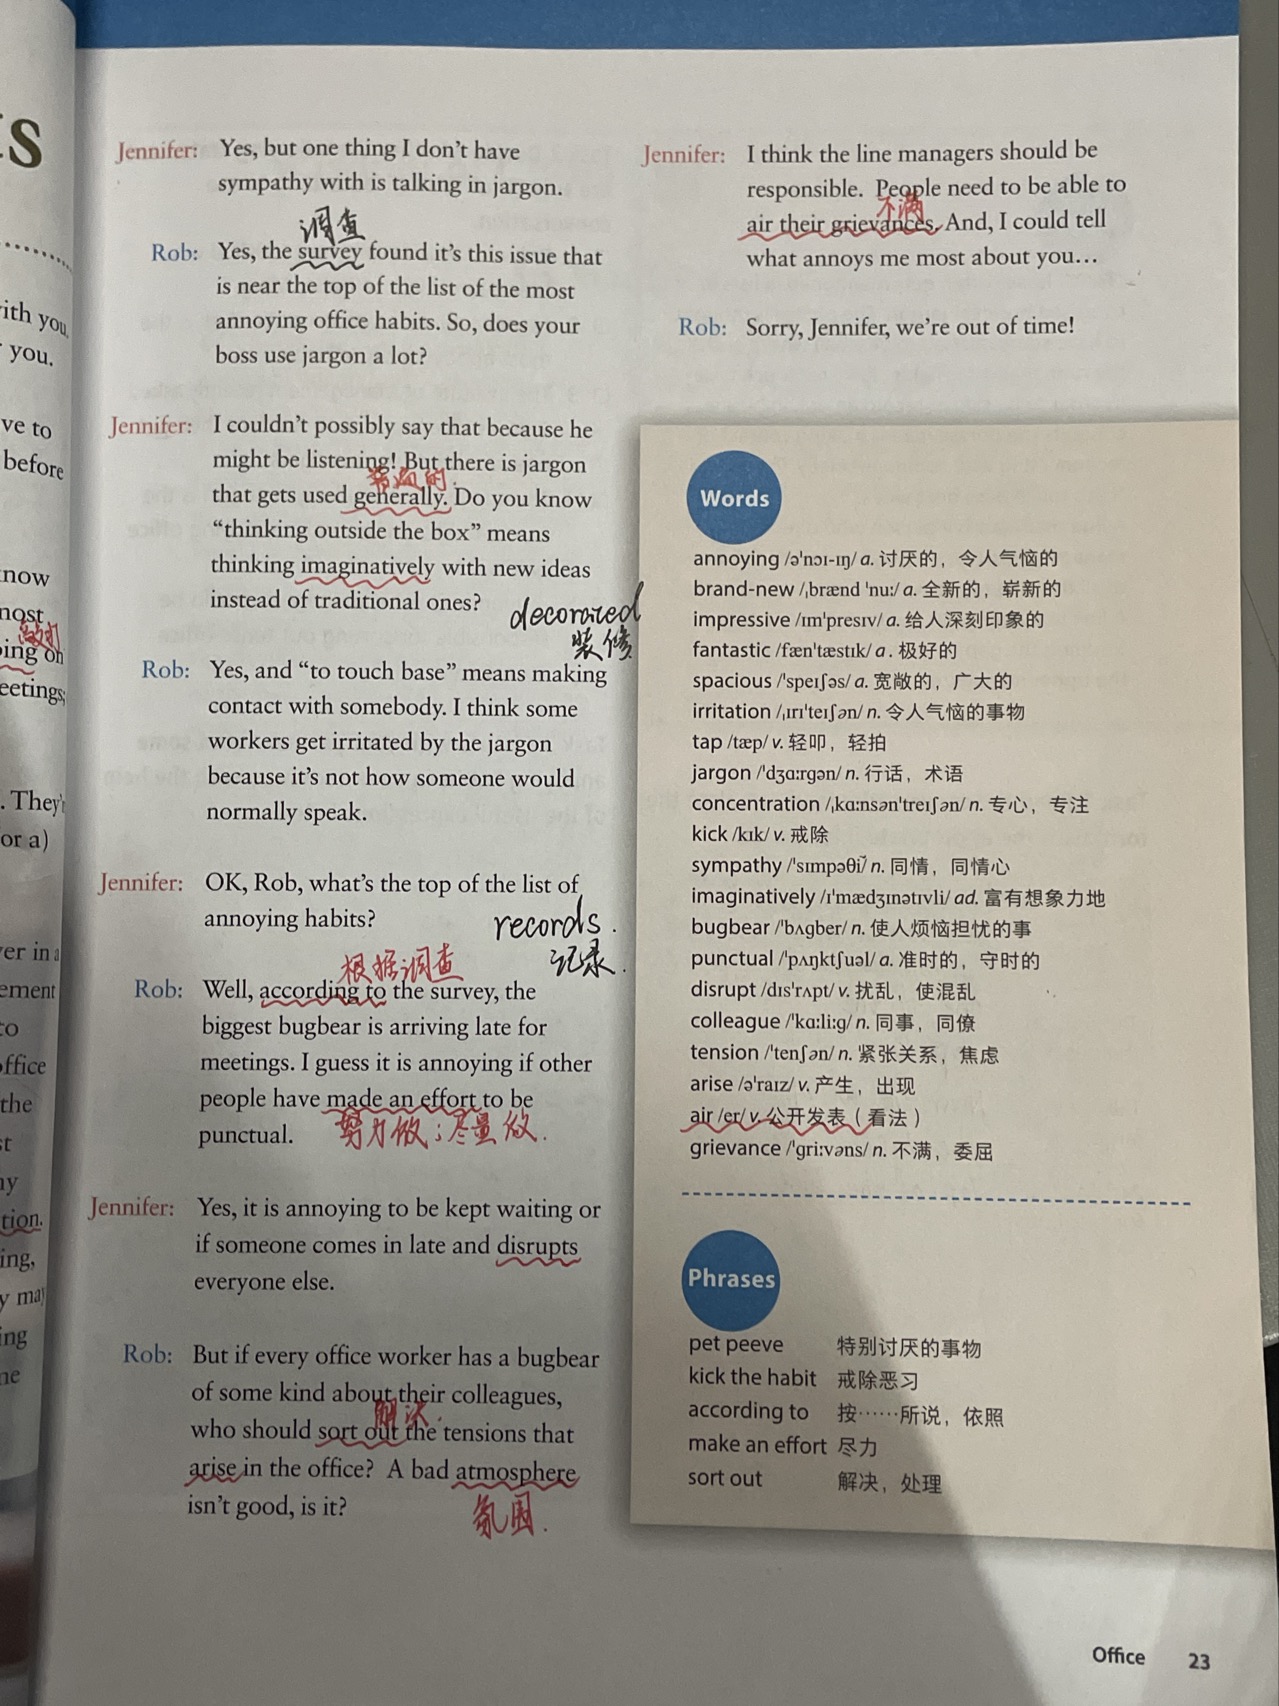 IS
with you
you.
ve to
before
now
most
敲打
ing on
eetings;
. They'r
or a)
ver in a
ement
to
office
the
st
ny
tion.
ing,
y may
ing
ne
Jennifer: Yes, but one thing I don't have
sympathy with is talking in jargon.
调查
Rob: Yes, the survey found it's this issue that
is near the top of the list of the most
annoying office habits. So, does your
boss use jargon a lot?
Jennifer: I couldn't possibly say that because he
might be listening! But there is jargon
that gets used generally. Do you know
"thinking outside the box" means
thinking imaginatively with new ideas
instead of traditional ones?
decorated
装修
Rob: Yes, and "to touch base" means making
contact with somebody. I think some
workers get irritated by the jargon
because it's not how someone would
normally speak.
Jennifer: OK, Rob, what's the top of the list of
annoying habits?
records.
记录.
根据调查
Rob: Well, according to the survey, the
biggest bugbear is arriving late for
meetings. I guess it is annoying if other
people have made an effort to be
punctual.
努力做；尽量做.
Jennifer: Yes, it is annoying to be kept waiting or
if someone comes in late and disrupts
everyone else.
Rob: But if every office worker has a bugbear
of some kind about their colleagues,
解决.
who should sort out the tensions that
arise in the office? A bad atmosphere
isn't good, is it?
氛围.
Jennifer: I think the line managers should be
responsible. People need to be able to
不满
air their grievances. And, I could tell
what annoys me most about you...
Rob: Sorry, Jennifer, we're out of time!
Words
annoying /ə'nɔɪ-ɪŋ/ a. 讨厌的，令人气恼的
brand-new /ˌbrænd 'nu:/ a. 全新的，崭新的
impressive /ɪm'presɪv/ a. 给人深刻印象的
fantastic /fæn'tæstɪk/ a. 极好的
spacious /'speɪʃəs/ a. 宽敞的，广大的
irritation /ˌɪrɪ'teɪʃən/ n. 令人气恼的事物
tap /tæp/ v. 轻叩，轻拍
jargon /'dʒɑ:rgən/ n. 行话，术语
concentration /ˌkɑ:nsən'treɪʃən/ n. 专心，专注
kick /kɪk/ v. 戒除
sympathy /'sɪmpəθi/ n. 同情，同情心
imaginatively /ɪ'mædʒɪnətɪvli/ ad. 富有想象力地
bugbear /'bʌgber/ n. 使人烦恼担忧的事
punctual /'pʌŋktʃuəl/ a. 准时的，守时的
disrupt /dɪs'rʌpt/ v. 扰乱，使混乱
colleague /'kɑ:li:g/ n. 同事，同僚
tension /'tenʃən/ n. 紧张关系，焦虑
arise /ə'raɪz/ v. 产生，出现
air /er/ v. 公开发表（看法）
grievance /'gri:vəns/ n. 不满，委屈
Phrases
pet peeve 特别讨厌的事物
kick the habit 戒除恶习
according to 按……所说，依照
make an effort 尽力
sort out 解决，处理
Office 23